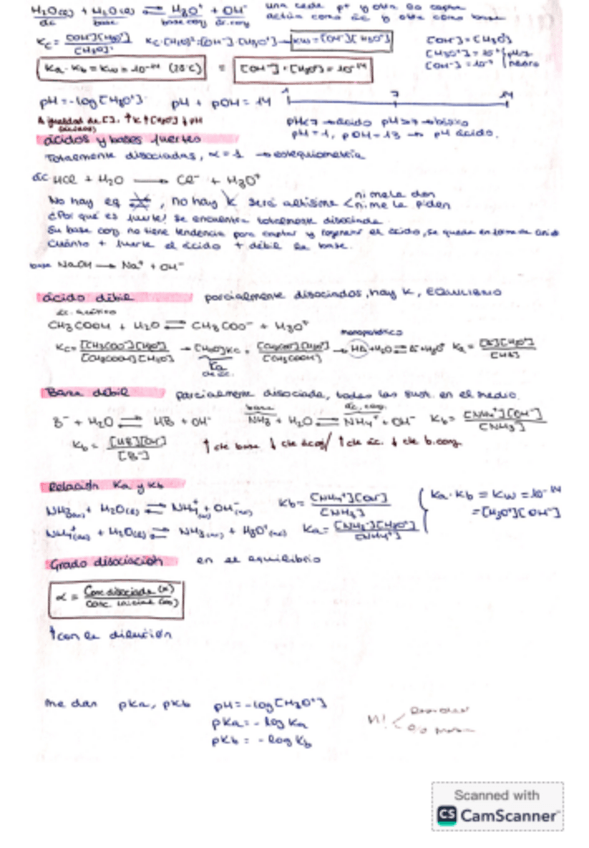 H2O(l) + H2O(l) ⇌ H3O+ + OH- una cede p+ y otra lo capta
ác base base conj ác. conj actúa como ác y otra como base
Kc = [OH-][H3O+] / [H2O]² Kc·[H2O]² = [OH-]·[H3O+] → Kw = [OH-][H3O+] [OH-] = [H3O+]
Ka · Kb = Kw = 10-14 (25ºC) = [OH-]·[H3O+] = 10-14
pH = -log[H3O+] pH + pOH = 14 1 7 14
A igualdad de [], ↑K ↑[H3O+] ↓pH pH<7 → ácido pH>7 → básico
pH = 1, pOH = 13 → pH ácido.
ácidos y bases fuertes
Totalmente disociadas, α = 1 → estequiometría
ác HCl + H2O → Cl- + H3O+
No hay eq, no hay K será altísima < ni me la dan
ni me la piden
¿Por qué es fuerte? se encuentra totalmente disociada
Su base conj no tiene tendencia para captar y regenerar el ácido, se queda en forma de
Cuánto + fuerte el ácido + débil la base.
base NaOH → Na+ + OH-
ácido débil parcialmente disociados, hay K, EQUILIBRIO
ác. acético
CH3COOH + H2O ⇌ CH3COO- + H3O+
monoprótico
Kc = [CH3COO-][H3O+] / [CH3COOH][H2O] → [H2O]·Kc = [CH3COO-][H3O+] / [CH3COOH] → HB + H2O ⇌ B- + H3O+ Ka = [B-][H3O+] / [HB]
Ka
Base débil parcialmente disociada, todas las sust. en el medio.
base ác. conj.
B- + H2O ⇌ HB + OH- NH3 + H2O ⇌ NH4+ + OH- Kb = [NH4+][OH-] / [NH3]
Kb = [HB][OH-] / [B-] ↑ cte base ↓ cte ác conj / ↑ cte ác. ↓ cte b. conj
Relación Ka y Kb
NH3(ac) + H2O(l) ⇌ NH4+(ac) + OH-(ac) Kb = [NH4+][OH-] / [NH3] Ka · Kb = Kw = 10-14
NH4+(ac) + H2O(l) ⇌ NH3(ac) + H3O+(ac) Ka = [NH3][H3O+] / [NH4+] = [H3O+][OH-]
Grado disociación en el equilibrio
α = Conc disociada (x) / Conc. inicial (co)
↑ con la dilución
me dan pKa, pKb pH = -log[H3O+]
pKa = -log Ka
pKb = -log Kb
Scanned with
CS CamScanner